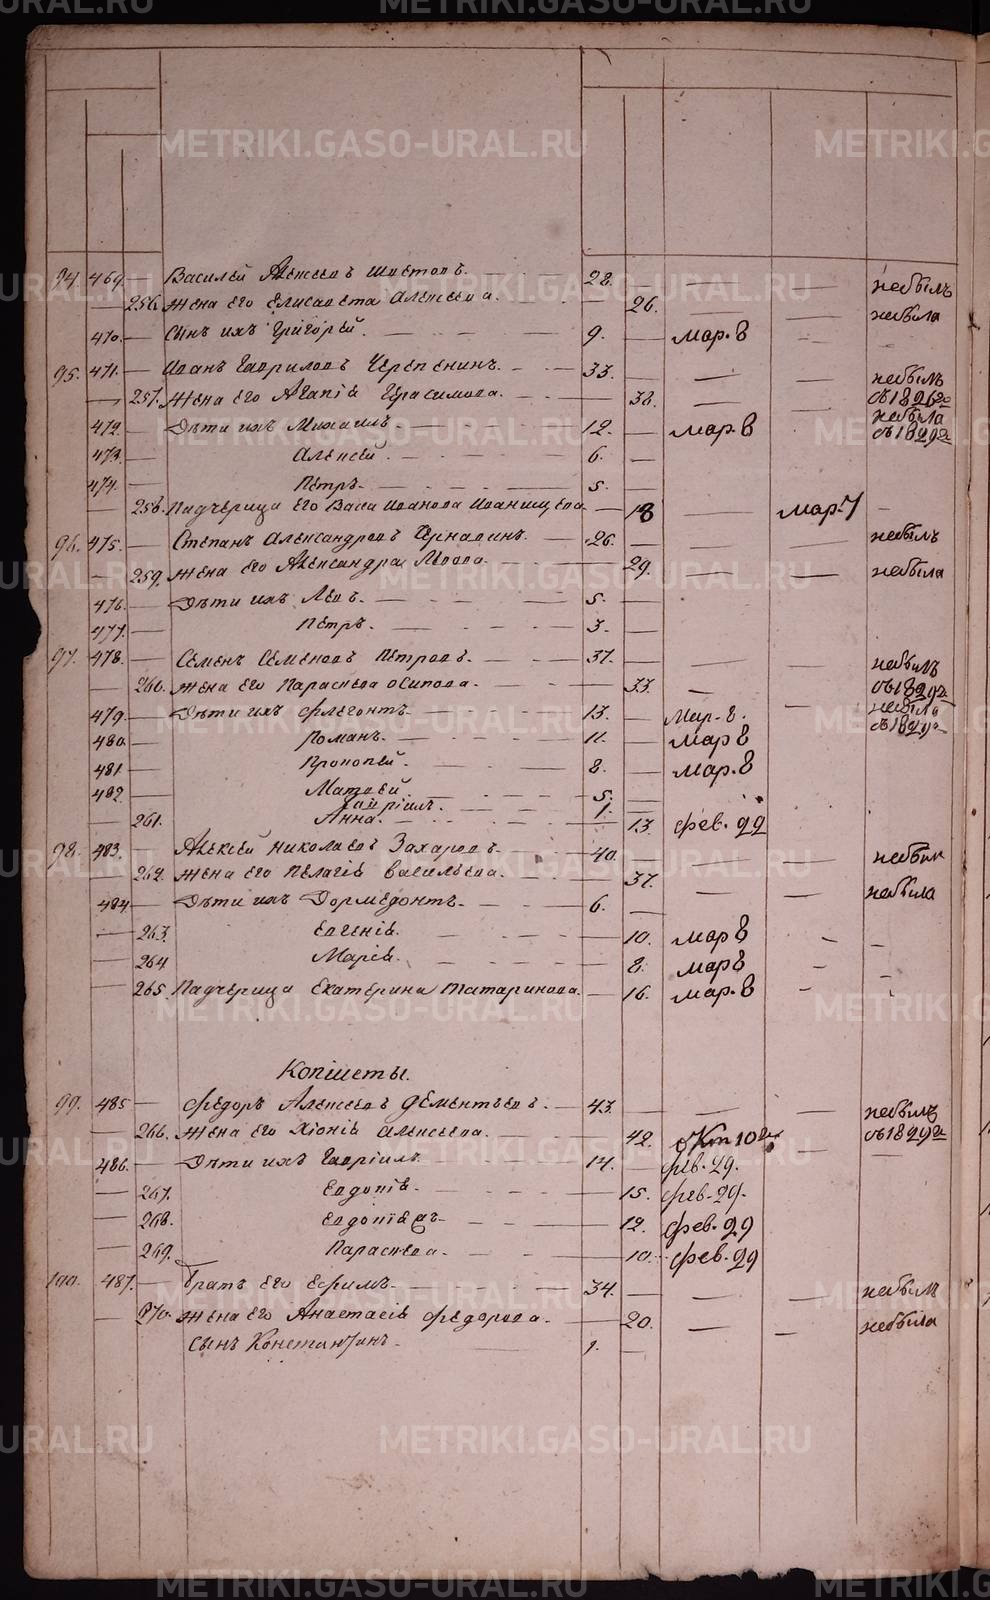 94. 469. — Василей Алексеевъ Шестовъ. 28. — — — небылъ
— 256. Жена его Елисавета Алексеева. — 26. — — небыла
470. — Сынъ ихъ Григорей. 9. — мар. 8
95. 471. — Иванъ Гавриловъ Черепенинъ. 33. — — — небылъ съ 1826го
— 257. Жена его Агапія Герасимова. — 38. — — небыла съ 1829го
472. — Дѣти ихъ Михаилъ. 12. — мар 8
473. — Алексей. 6. —
474. — Петръ. 5. —
— 258. Падчерица его Васа Иванова — 18 — мар. 7 —
96. 475. — Степанъ Александровъ 26. — — — небылъ
— 259. Жена его Александра Львова. — 29. — — небыла
476. — Дѣти ихъ Левъ. 5. —
477. — Петръ. 3. —
97. 478. — Семенъ Семеновъ Петровъ. 37. — — — небылъ съ 1829го
— 260. Жена его Парасковья Осипова. — 33. — — небыла съ 1829го
479. — Дѣти ихъ Флегонтъ. 13. — Мар. 8.
480. — Романъ. 11. — мар 8
481 — Прокопей. 8. — мар. 8
482 — Матвей. 5. —
Гавріилъ. 1. —
— 261. Анна. — 13. фев. 22
98. 483. — Алексей Николаевъ Захаровъ. 40. — — — небыл
— 262. Жена его Пелагія Васильева. — 37. — — небыла
484 — Дѣти ихъ Дормедонтъ. 6. —
— 263. Евгенія. — 10. мар 8 — —
— 264 Марія. — 8. мар 8 — —
— 265. Падчерица Екатерина Татаринова. — 16. мар. 8 — —
Копіисты.
99. 485 — Федоръ Алексеевъ Дементьевъ. — 43. — — — небылъ съ 1829го
— 266. Жена его Хіонія Алексеева. — 42. окт 10го —
486. — Дѣти ихъ Гавріилъ. 14. — фев. 29.
— 267. Евдокія. — 15. фев. 29.
— 268. Евдокія — 12. фев. 29
— 269. Парасковья. — 10. фев. 29
100. 487. — Братъ его Ефимъ. 34. — — — небылъ
— 270. Жена его Анастасія Федорова. — 20. — — небыла
Сынъ Константинъ. 1. —